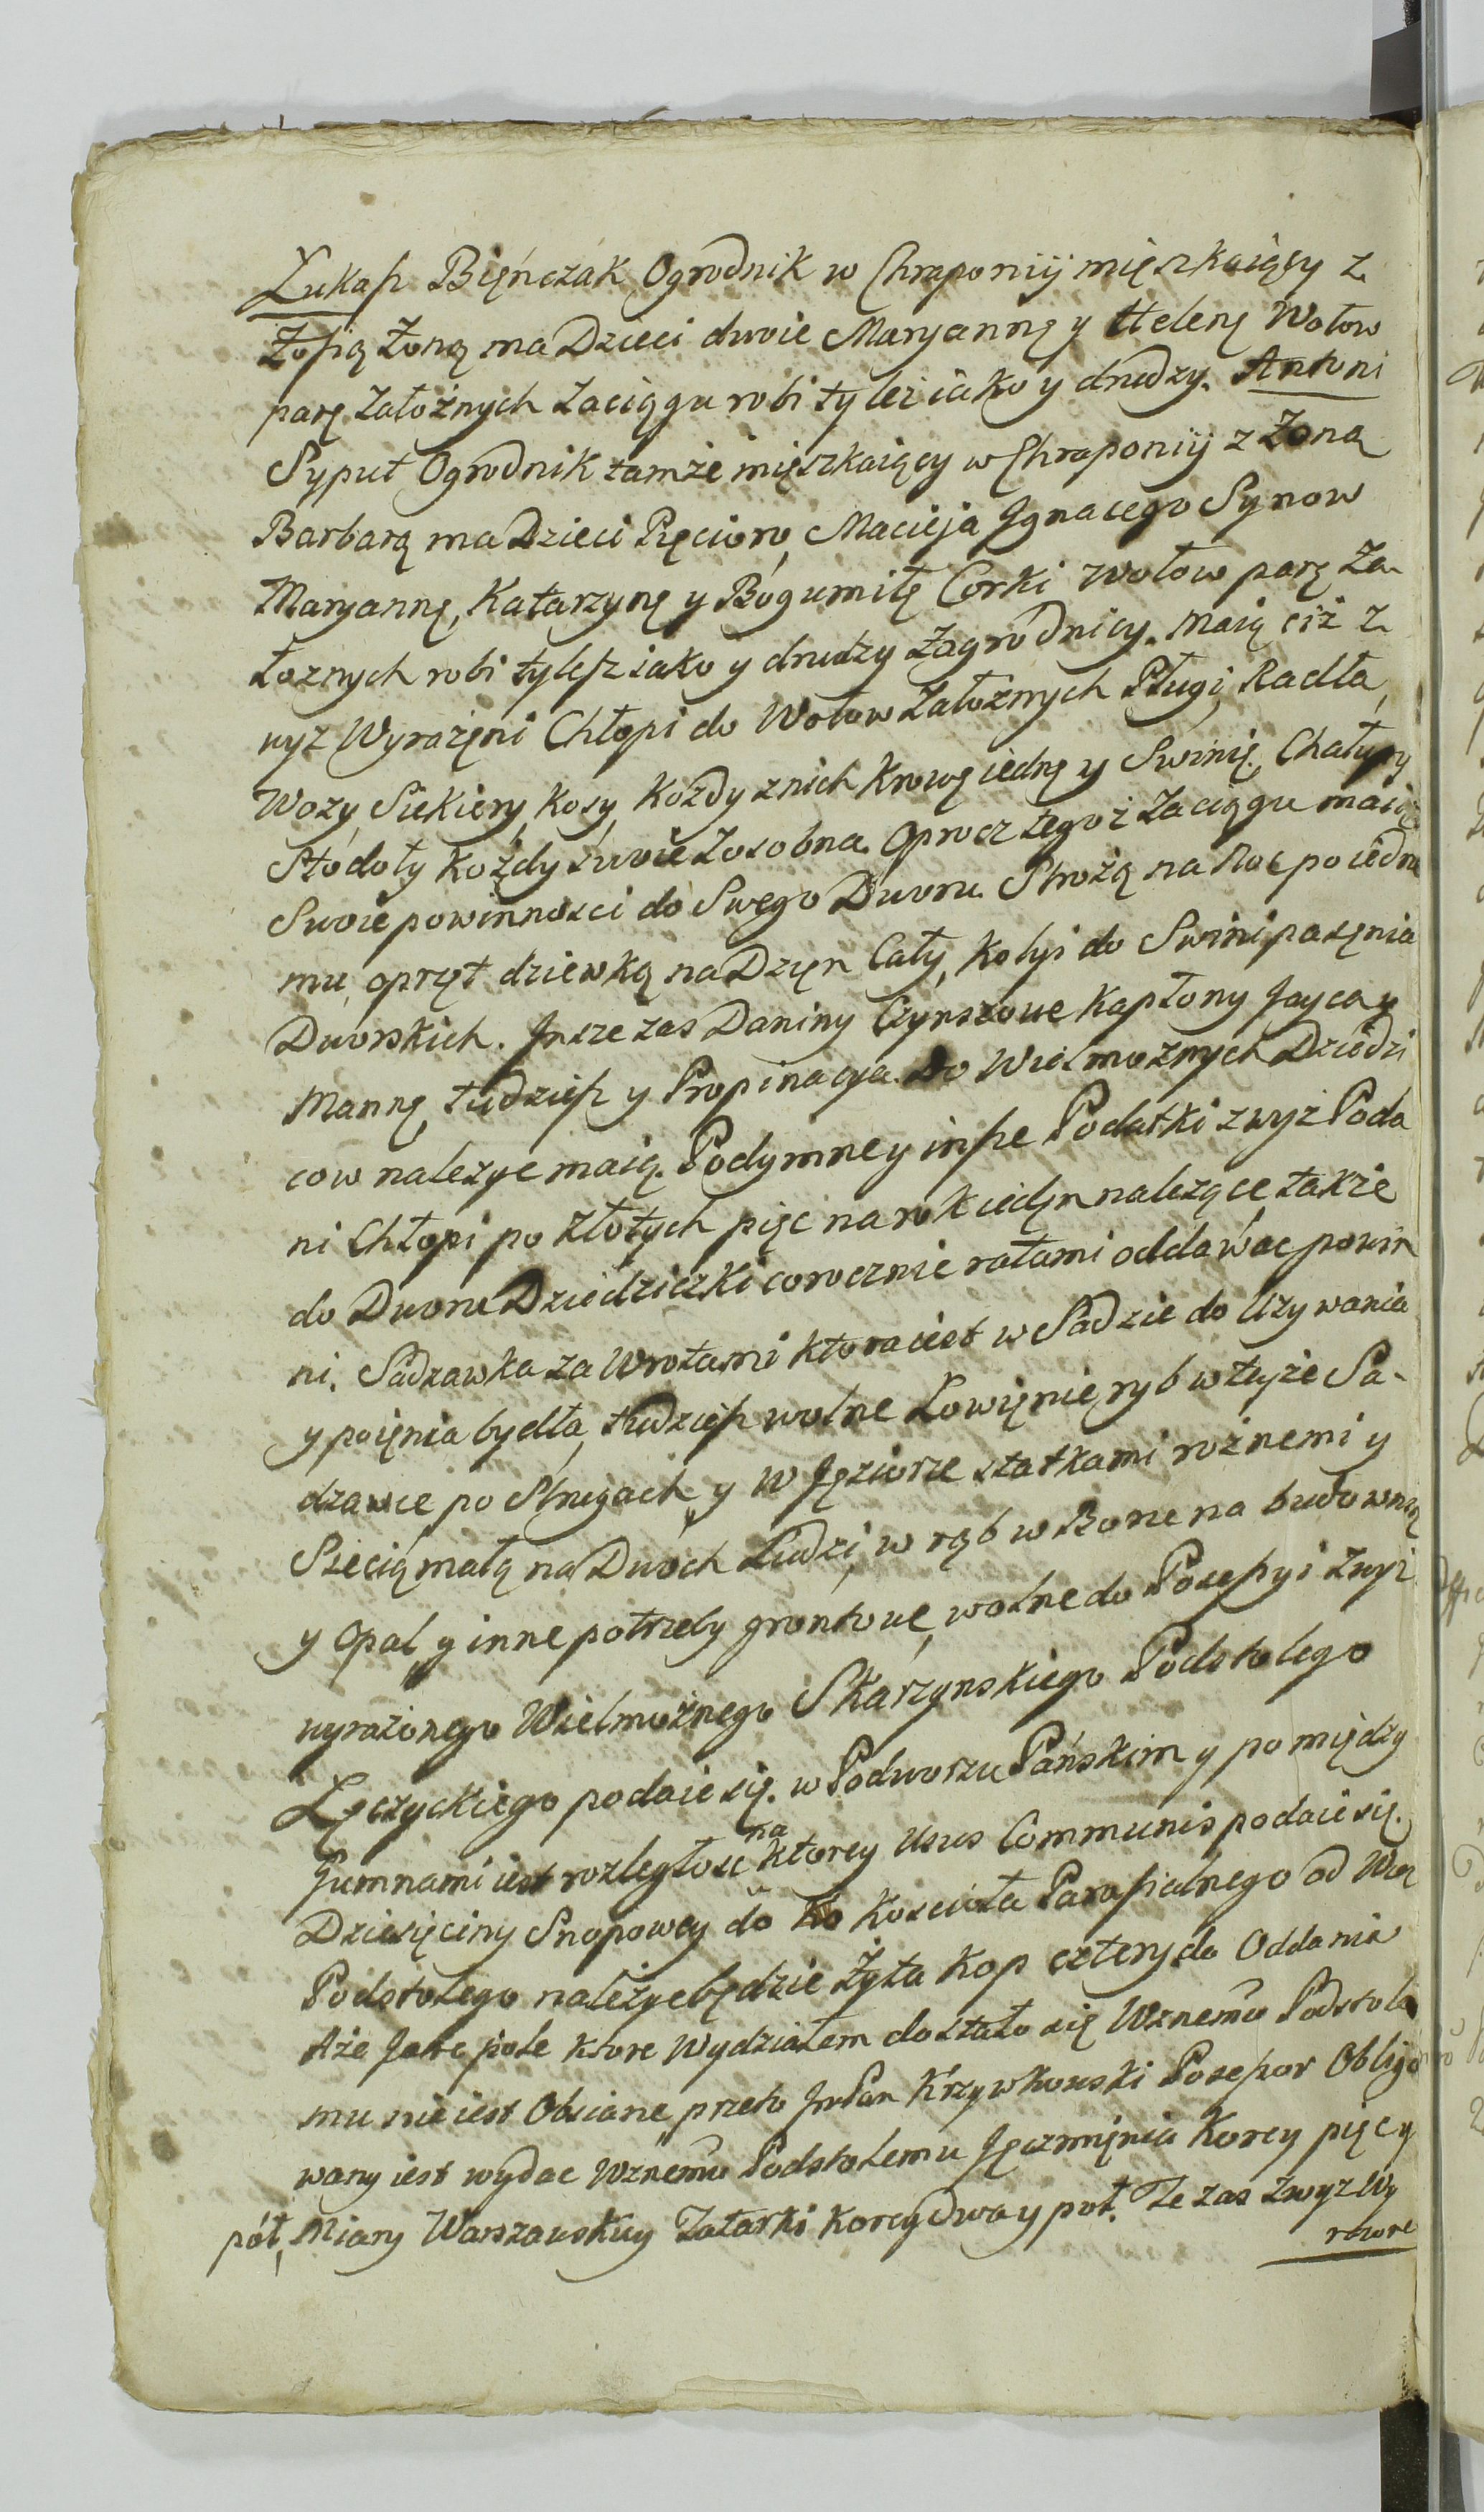 Łukasz Bięńczak Ogrodnik w Chraponiÿ mięszkaiący z
Zofią Zoną ma Dzieci dwoie Maryannę y Helenę Wołow
parę Załoznych Zaciągu robi tyleż iako y drudzy. Antoni
Syput Ogrodnik tamże mięszkaiący w Chraponiÿ z Zoną
Barbarą ma Dzieci Pięcioro, Macieja Jgnacego Synow
Maryannę, Katarzynę y Bogumiłę Corki Wołow parę Za-
łoznych robi tylesz iako y drudzy Zagrodnicy. Maią ciż z
wyz Wyrażęni Chłopi do Wołow Załoznych Pługi, Radła,
Wozy, Siekiery, Kosy, Kożdy z nich Krowę iednę y Swinię, Chałupy
Stodoły Kożdy swoie Zosobna. Oprocz tegoż Zaciągu maią
Swoie powinnosci do Swego Dworu Strożą na Noc po iedne
mu, oprzęt dziewką na Dzięn Cały, Kolyi do Swini pasęnia
Dworskich. Jnsze zas Daniny Czynszowe Kapłony Jayca y
Mannę, tudziesz y Propinacya Do Wielmoznych Dziedzi
cow nalezyc maią. Podymne y insze Podatki zwyż Poda
ni Chłopi po Złotych pięc na rok iedęn nalezące, także
do Dworu Dziedziczki corocznie ratami oddawac powin
ni. Sadzawka za Wrotami ktora iest w Sadzie do Uzywania
y poięnia bydła, tudziesz wolne Łowięnie ryb w teyże Sa-
dzawce po Strugach, y w Jęziorze statkami rożnemi y
Siecią małą na Dwoch Ludzi, w rąb w Borze na budowną
y Opał, y inne potrzeby grontowe, wolne do Posessyi Zwyż
wyrażonego Wielmożnego Skarzynskiego Podstolego
Łęczyckiego podaie się. w Podworzu Pańskim y pomiędzy
Gumnami iest rozległosc na ktorey Usus Communis podaie się.
Dziesięciny Snopowey do Ko Koscioła Parafialnego od Wgo
Podstolego należyc będzie Żyta Kop cztery do Oddania
Aże Jare pole ktore Wydziałem dostało się Wznemu Podstole
mu nie iest Obsiane, przeto JmPan Krzywkowski Posessor Obligo
wany iest wydac Wznemu Podstolemu Jęczmięnia Korcy pięc y
pół, Miary Warszawskiey Tatarki Korcy dwa y poł. Te zas Zwyz Wy
rażone